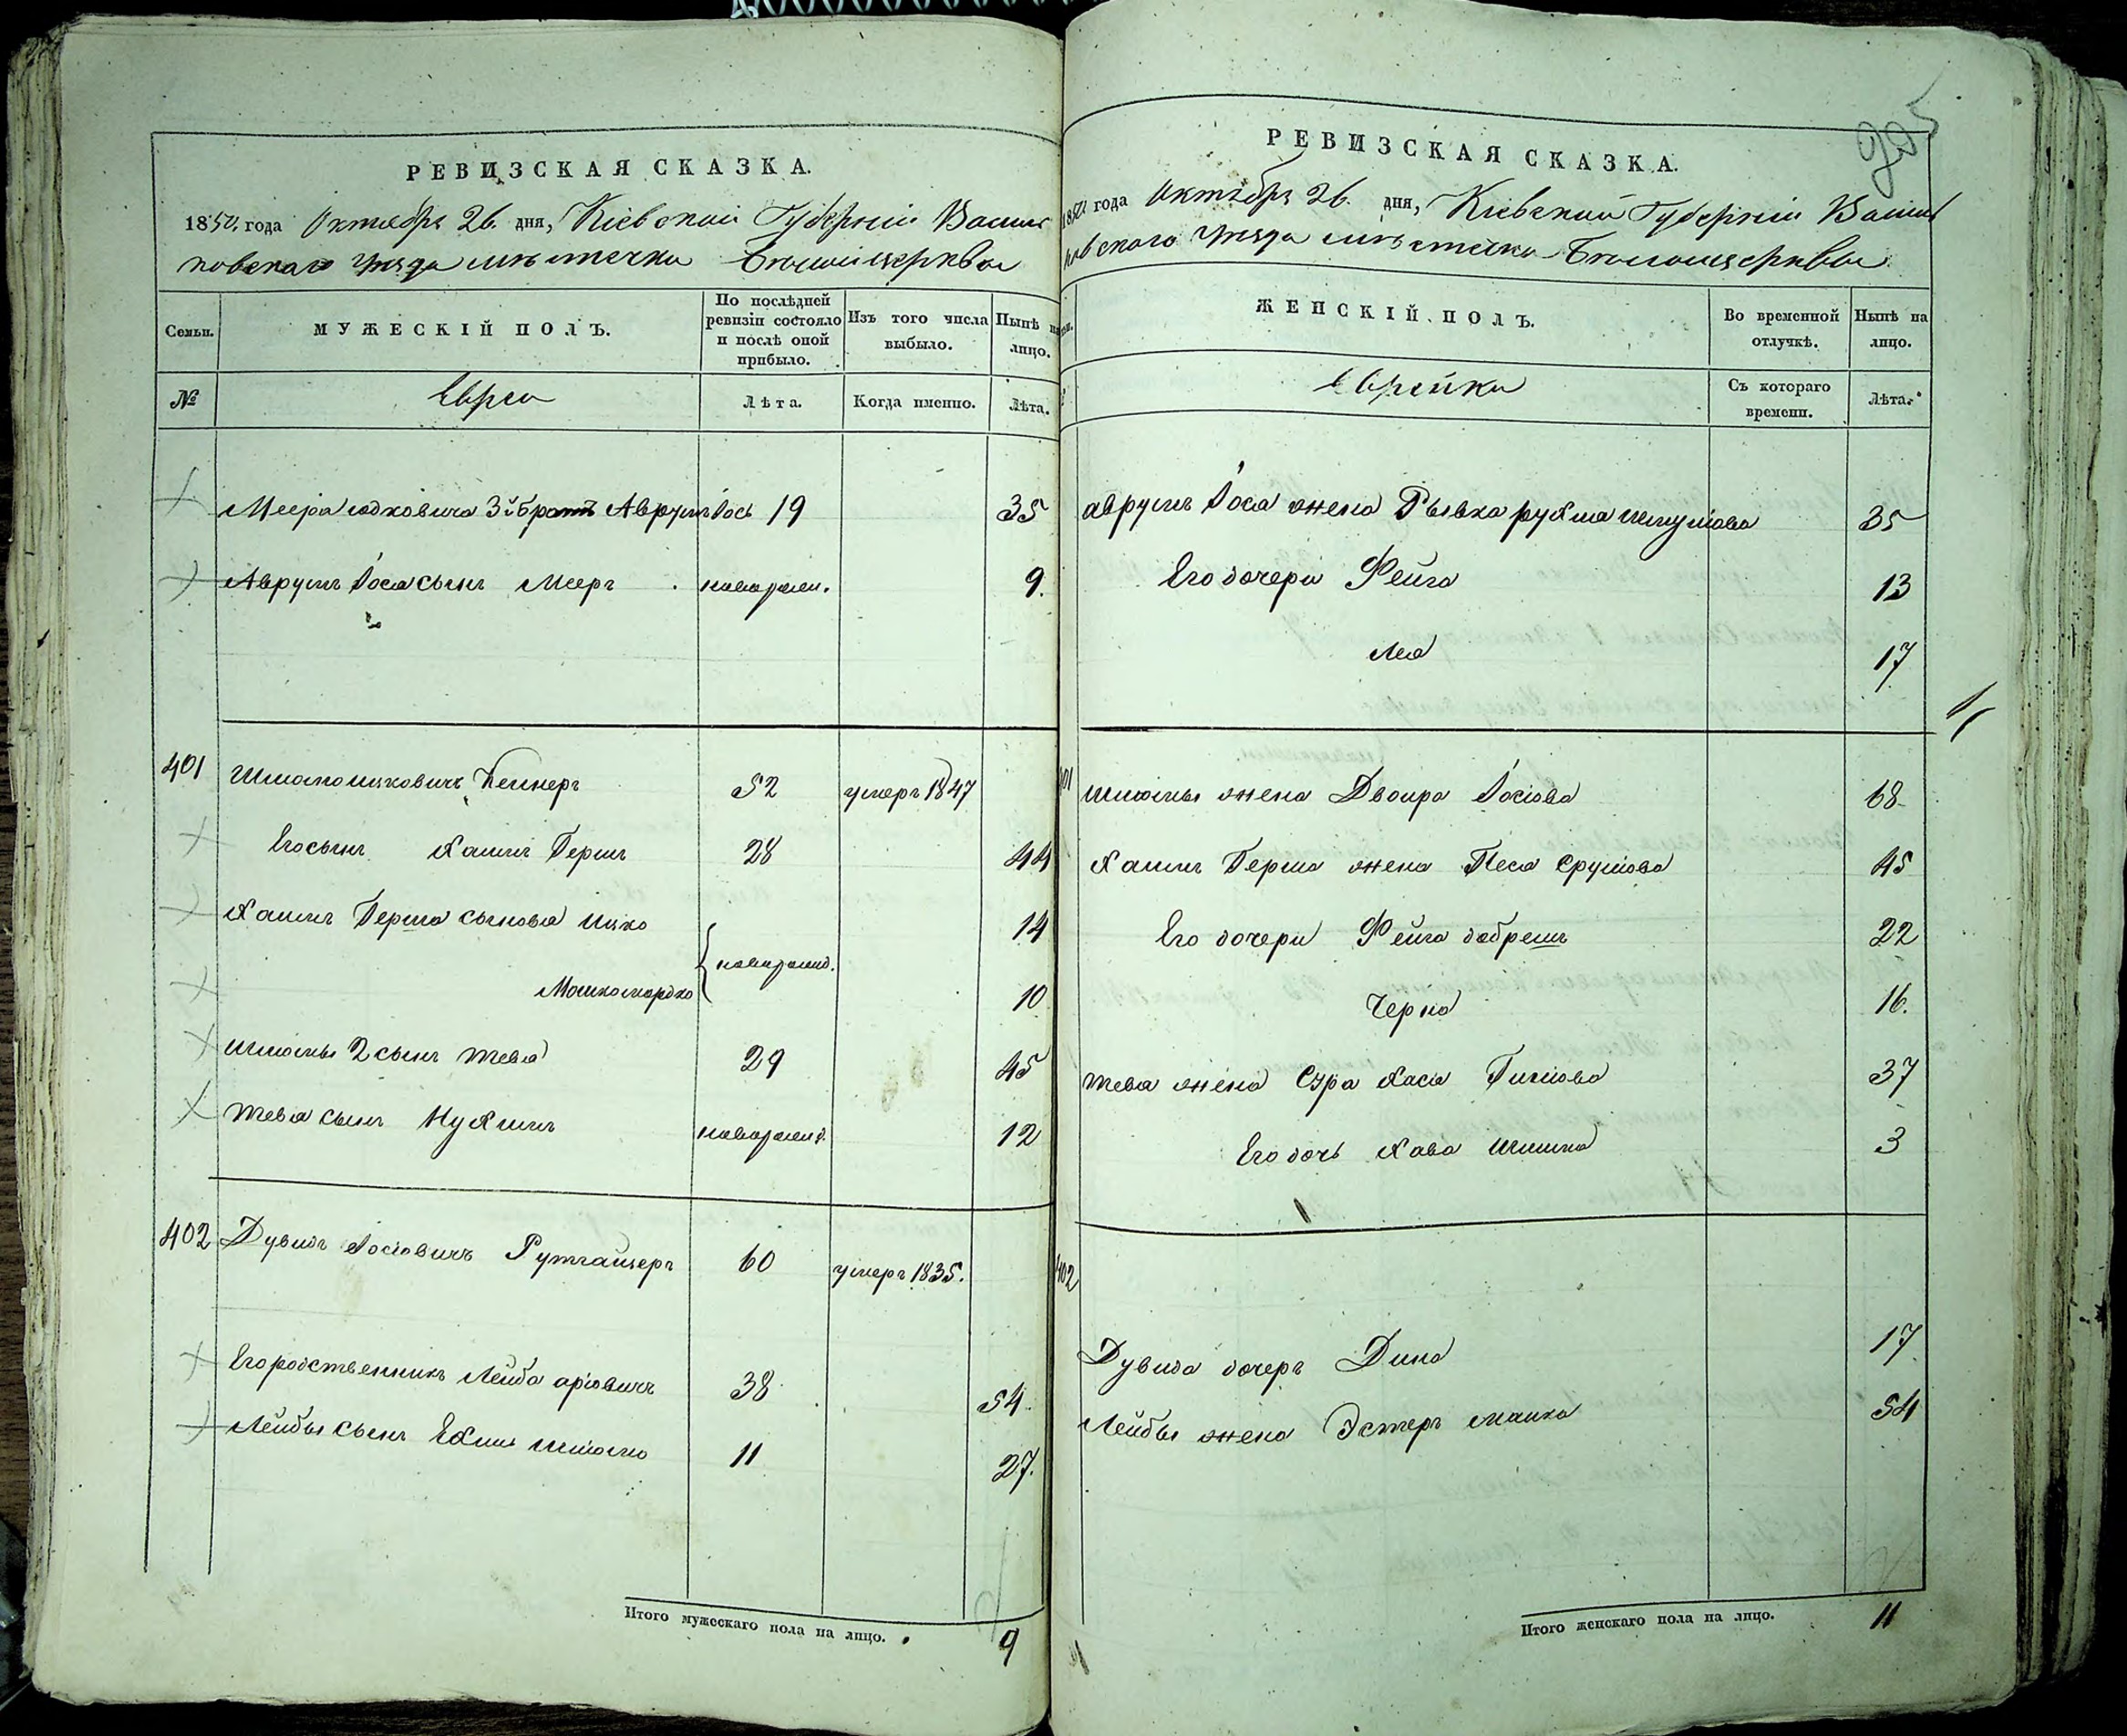 РЕВИЗСКАЯ СКАЗКА.
1850 года Октября 26. дня, Кіевской Губерніи Василь
ковскаго уезда мѣстечка Бѣлойцеркви
Семьи.
МУЖЕСКІЙ ПОЛЪ.
По послѣдней ревизіи состояло и послѣ оной прибыло.
Изъ того числа выбыло.
Нынѣ на лицо.
№
Евреи
Лѣта.
Когда именно.
Лѣта.
Меера юдковича 3й братъ Аврумъ Іось 19 35
Аврумъ Іоса сынъ Мееръ новорожден. 9.
401 Шмолиоицковичъ 52 умеръ 1847
Его сынъ Хаимъ Герш 28 44
Хаимъ Герша сыновья Ицко 14
новорожд.
Мошкомордко 10
Шмольы 2 сынъ Тевя 29 45
Тевя сынъ Нухимъ новорожд. 12
402 Дувидъ Іосіовичъ Рутгайзеръ 60 умеръ 1835.
Его родственникъ Лейба аріовичъ 38 54.
Лейбы сынъ Шмолю 11 27.
Итого мужескаго пола на лицо. 9
РЕВИЗСКАЯ СКАЗКА.
1850 года Октября 26. дня, Кіевской Губерніи Василь
ковскаго уезда мѣстечка Бѣлойцеркви
ЖЕНСКІЙ ПОЛЪ.
Во временной отлучкѣ.
Нынѣ на лицо.
Еврейки
Съ котораго времени.
Лѣта.
аврумъ Іоса жена Рывка рухля 35
Его дочери Фейга 13
Лея 17
401 Шмольы жена Двойра Іосіова 68
Хаимъ Герша жена Песя Сруліова 45
Его дочери Фейга добришъ 22
Черна 16.
Тевя жена Сура Хася 37
Его дочь Хава 3
402
Дувида дочеръ Дина 17
Лейбы жена Эстеръ малка 54
Итого женскаго пола на лицо. 11